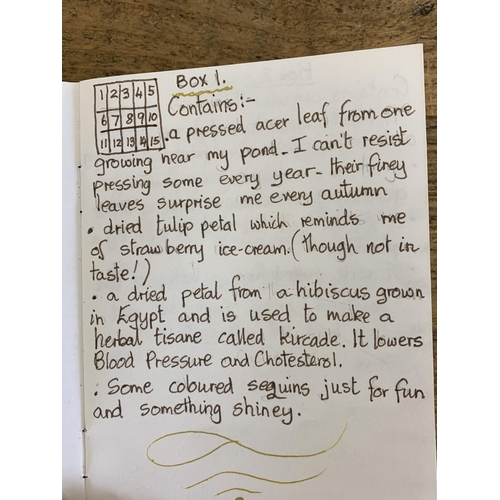 Box 1.
1 2 3 4 5
6 7 8 9 10
11 12 13 14 15
Contains:-
. a pressed acer leaf from one
growing near my pond. I can't resist
pressing some every year - their firey
leaves surprise me every autumn
. dried tulip petal which reminds me
of strawberry ice-cream. (though not in
taste!)
. a dried petal from a hibiscus grown
in Egypt and is used to make a
herbal tisane called kircade. It lowers
Blood Pressure and Cholesterol.
. Some coloured sequins just for fun
and something shiney.